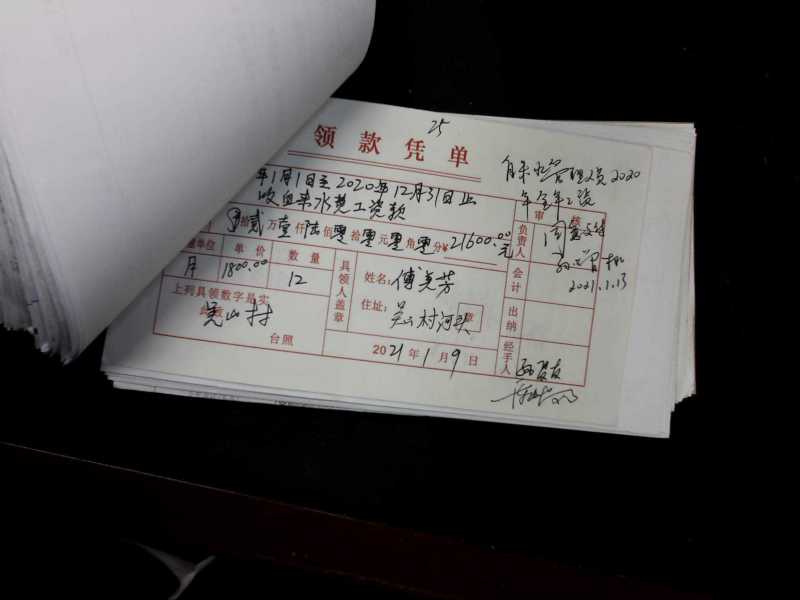 25
领款凭单
自来水管理员2020
年全年工资
年1月1日至2020年12月31日止
收自来水费工资款
审核
拾贰万壹仟陆佰零拾零元零角零分¥21600.00元
单位 单价 数量
月 1800.00 12
负责人
会计
2021.1.13
出纳
经手人
具领人盖章
姓名:傅光芳
住址:吴山村河头
章
上列具领数字是实
此致
吴山村
台照
2021年1月9日